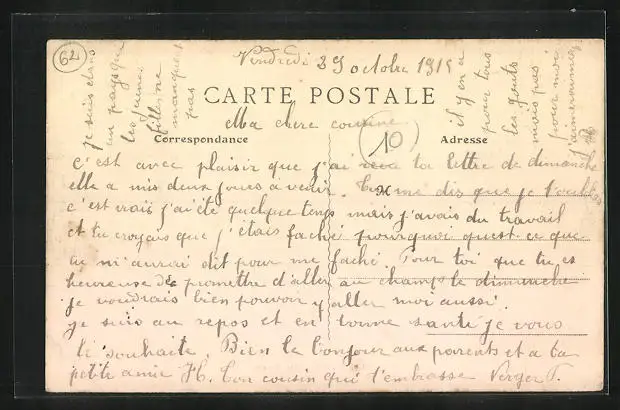 62
je suis dans
un pays que
les jeunes
filles ne
manques
pas
Vendredi 29 octobre 1915
il y en a
pour tous
les gouts
mais pas
pour moi
j'aimerai mieux
CARTE POSTALE
Ma chere cousine
10
Correspondance
Adresse
c'est avec plaisir que j'ai recu ta lettre de dimanche
elle a mis deux jours a venir. Tu me dis que je t'oublies
c'est vrais j'ai été quelque temps mais j'avais du travail
et tu croyais que j'étais faché pourquoi quest ce que
tu m'aurai dit pour me faché. Pour toi que tu es
heureuse de promettre d'aller au champs le dimanche
je voudrais bien pouvoir y aller moi aussi.
je suis au repos et en bonne santé je vous
le souhaite. Bien le bonjour aux parents et a ta
petite amie H. Ton cousin qui t'embrasse Verger F.